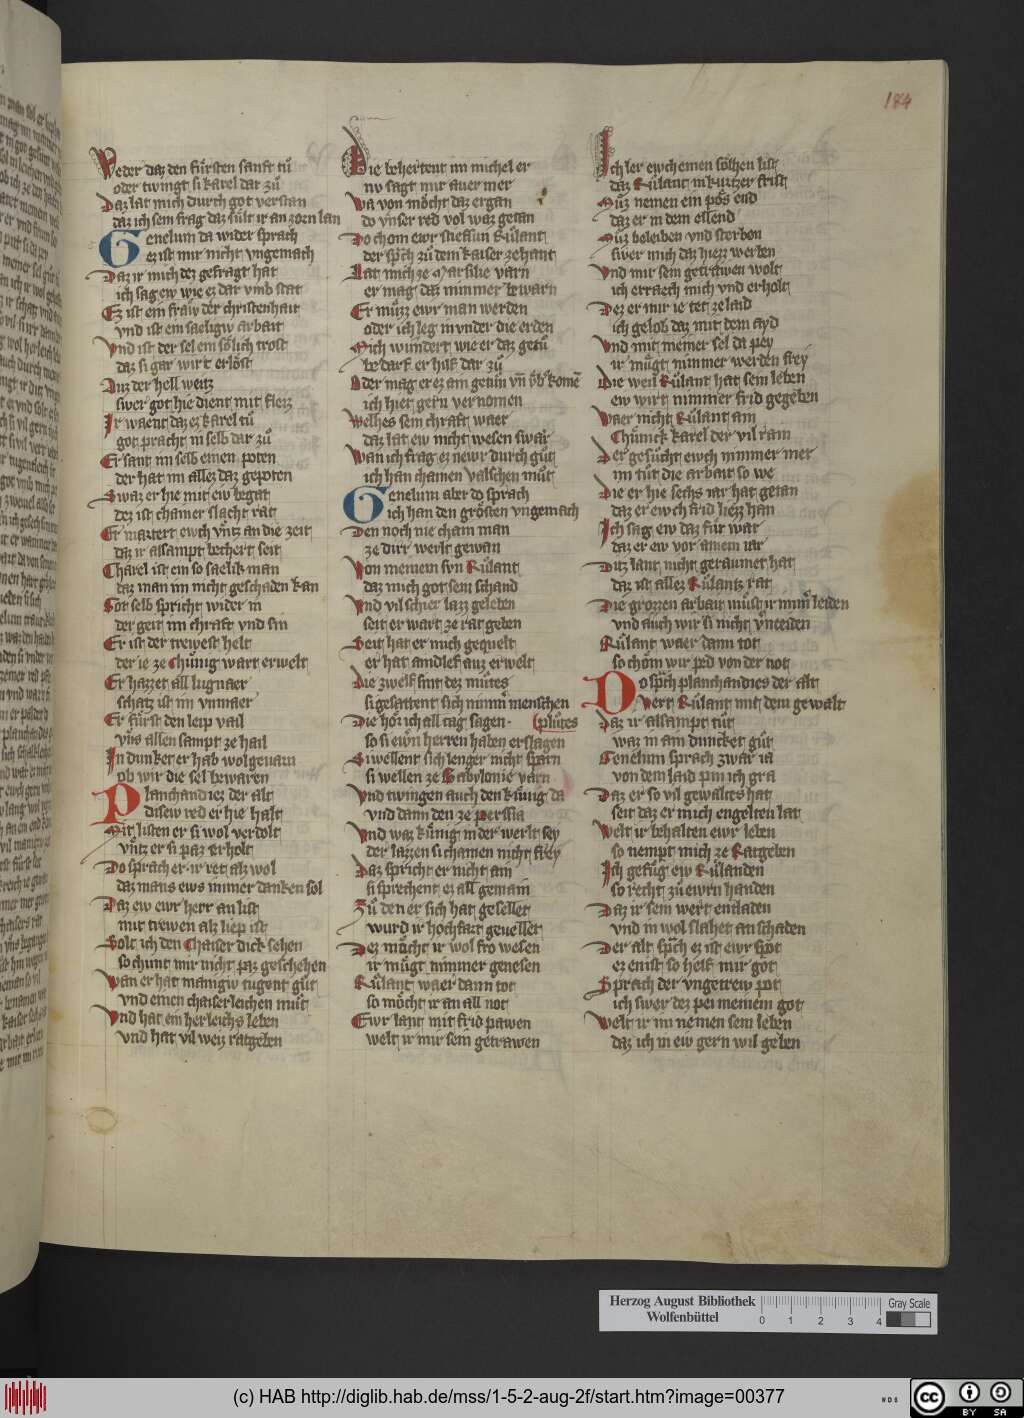 184
Weder daz den fuͤrsten sanft tuͤ
oder twingt si karel dar zuͤ
Daz lat mich durch got verstan
daz ich sein frag daz sult ir an zorn lan
Genelum da wider sprach
ez ist mir nicht vngemach
Daz ir mich dez gefragt hat
ich sag ew wie ez dar vmb stat
Ez ist ein fraw der christenhait
vnd ist ein saeligiv arbait
Vnd ist der sel ein soͤlich trost
daz si gar wirt erlost
Auz der hell weitz
swer got hie dient mit fleiz
Ir waent daz ez karel tuͤ
got pracht in selb dar zuͤ
Er sant im selb einen poten
der hat im allez daz gepoten
Swaz er hie mit ew begat
dez ist chainer slacht rat
Er martert ewch vntz an die zeit
daz ir alsampt bechert seit
Charel ist ein so saelik man
daz man im nicht geschaden kan
Got selb spricht wider in
der geit im chraft vnd sin
Er ist der trewest helt
der ie ze chuͤnig wart erwelt
Er hazzet all lugnaer
schatz ist im vnmaer
Er fuͤrst den leip vail
vns allen sampt ze hail
In dunket er hab wol getan
ob wir die sel bewaren
Planchandiez der alt
disew red er hie halt
Mit listen er si wol verdolt
vntz er si paz erholt
Do sprach er ir ret alz wol
daz mans ews immer danken sol
Daz ew ewr herr an list
mit trewen alz liep ist
Solt ich den Chaiser dick sehen
so chunt mir nicht paz geschehen
Wan er hat manigiv tugent guͤt
vnd einen chaiserleichen muͤt
Vnd hat ein herleichs leben
vnd hat vil weiz ratgeben
Die behertent im michel er
nv sagt mir auer mer
Wa von moͤcht daz ergan
do vnser red vol waz getan
Do chom ewr stiefsun Ruͤlant
der sprach zuͤ dem kaiser zehant
Lat mich ze Marsilie varn
er mag daz nimmer bewarn
Er muͤzz ewr man werden
oder ich leg in vnder die erden
Mich wundert wie er daz getuͤ
bedarf er hilf dar zuͤ
Oder mag er ez am getuͤn vnd
ich hiet gern vernomen
Welhes sein chraft waer
daz lat ew nicht wesen swaͤr
Wan ich frag ez newr durch guͤt
ich han chainen valschen muͤt
Genelum aber do sprach
ich han den groͤsten vngemach
Den noch nie cham man
ze dirr werlt gewan
Von meinem svn Ruͤlant
daz mich got sein schand
Vnd vil schier lazz geleben
seit er wart ze rat geben
Seit hat er mich gequelt
er hat aindlef auz erwelt
Die zwelf sint dez muͤtes
si gesattent sich nimmer menschen
Die hoͤr ich all tag sagen · (pluͤtes
so si ewrn herren haben erslagen
Si wellent sich lenger nicht sparn
si wellen ze Babylonie varn
Vnd twingen auch den kuͤnig da
vnd dann den ze perssia
Vnd waz kuͤnig in der werlt sey
der lazzen si chainen nicht frey
Daz spricht er nicht ain
si sprechent ez all gemain
Zuͤ den er sich hat gesellet
wurd ir hochfart geuellet
Dez moͤcht ir wol fro wesen
ir muͤgt nimmer genesen
Ruͤlant waer dann tot
so moͤcht ir an all not
Ewr lant mit frid pawen
welt ir mir sein getrawen
Ich ler ewch einen soͤlhen list
daz Ruͤlant in kurtzer frist
Muͤz nemen ein poͤs end
daz er in dem ellend
Muͤz beleiben vnd sterben
swer mich daz hiezz werben
Vnd mir sein getrawen wolt
ich erraech mich vnd erholt
Dez er mir ie tet ze laid
ich gelob daz mit dem ayd
Vnd mit meiner sel da pey
ir muͤgt nimmer werden frey
Die weil Ruͤlant hat sein leben
ew wirt nimmer frid gegeben
Waer nicht Ruͤlant ain
Chuͤnick karel der vil rain
Der gesuͤcht ewch nimmer mer
im tuͤt die arbait so we
Die er hie sechs iar hat getan
daz er ewch frid liezz han
Ich sag ew daz fuͤr war
daz er ew vor ainem iar
Ditz lant nicht geraumet hat
daz ist allez Ruͤlantz rat
Die grozzen arbait muͤst ir immer leiden
vnd auch wir si nicht vermeiden
Ruͤlant waer dann tot
so choͤm wir ped von der not
Do sprach planchandies der alt
vert Ruͤlant mit dem gewalt
Daz ir alsampt tuͤt
waz in am duncket guͤt
Genelum sprach zwar ia
von dem laid pin ich gra
Daz er so vil gewaltes hat
seit daz er mich engelten lat
Welt ir behalten ewr leben
so nempt mich ze Ratgeben
Ich gefuͤg ew Ruͤlanden
so recht zuͤ ewrn handen
Daz ir sein wert entladen
vnd in wol slahet an schaden
Der alt sprach ez ist ewr spot
ez enist so helf mir got
Sprach der vngetrew pot
ich swer dez pei meinem got
Welt ir im nemen sein leben
daz ich in ew gern wil geben
Herzog August Bibliothek
Wolfenbüttel
0 1 2 3 4
Gray Scale
(c) HAB http://diglib.hab.de/mss/1-5-2-aug-2f/start.htm?image=00377
cc BY SA